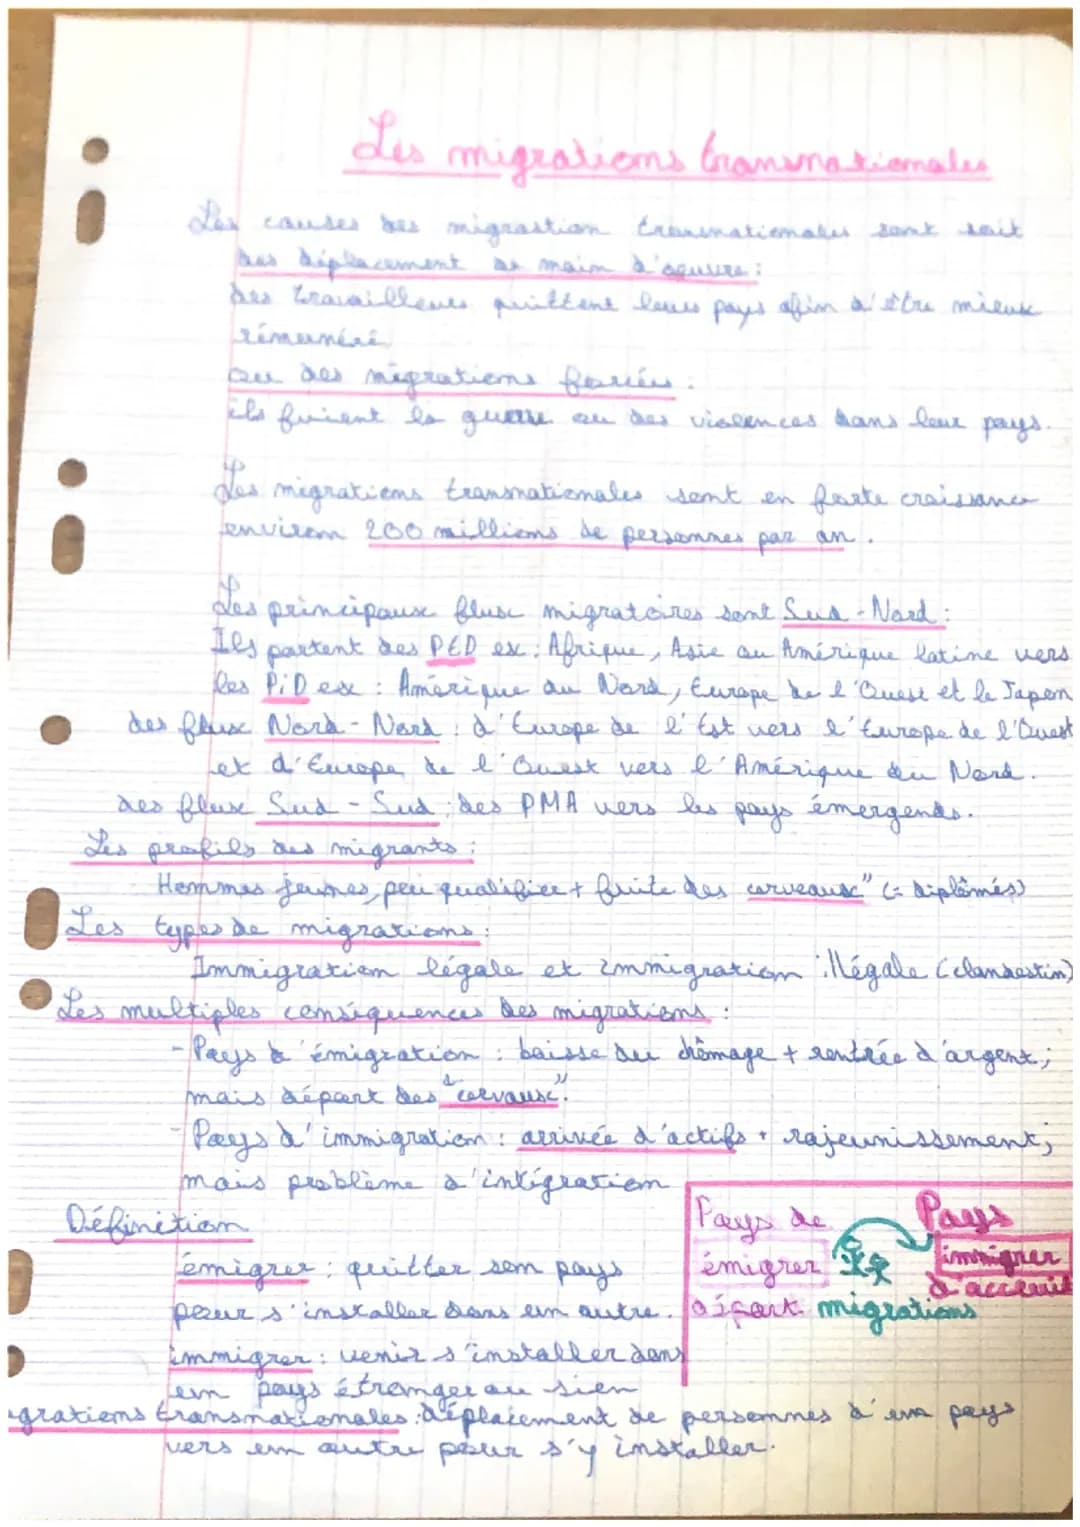 Les migrations transnationales
Les causes des migrastion transnationales sont soit
des déplacement de main d'oeuvre :
des travailleurs quittent leurs pays afin d'être mieux
rémunéré
ou des migrations forcées :
ils fuient la guerre ou des violences dans leur pays.
Les migrations transnationales sont en forte croissance
environ 200 millions de personnes par an.
Les principaux flux migratoires sont Sud - Nord :
Ils partent des PED ex : Afrique, Asie ou Amérique latine vers
les PiD ex : Amérique du Nord, Europe de l'Ouest et le Japon
des flux Nord - Nord : d'Europe de l'Est vers l'Europe de l'Ouest
et d'Europe de l'Ouest vers l'Amérique du Nord.
des flux Sud - Sud : des PMA vers les pays émergends.
Les profils des migrants :
Hommes jeunes, peu qualifier + fuite des cerveaux" (= diplômés)
Les types de migrations :
Immigration légale et immigration illégale (clandestin)
Les multiples conséquences des migrations :
- Pays d'émigration : baisse du chômage + rentrée d'argent ;
mais départ des "cerveaux".
- Pays d'immigration : arrivée d'actifs + rajeunissement ;
mais problème d'intégration
Définition
émigrer : quitter son pays
pour s'installer dans un autre.
immigrer : venir s'installer dans
un pays étranger au sien
grations transnationales : déplacement de personnes d'un pays
vers un autre pour s'y installer.
Pays de
émigrer
départ
migrations
Pays
immigrer
d'accueil